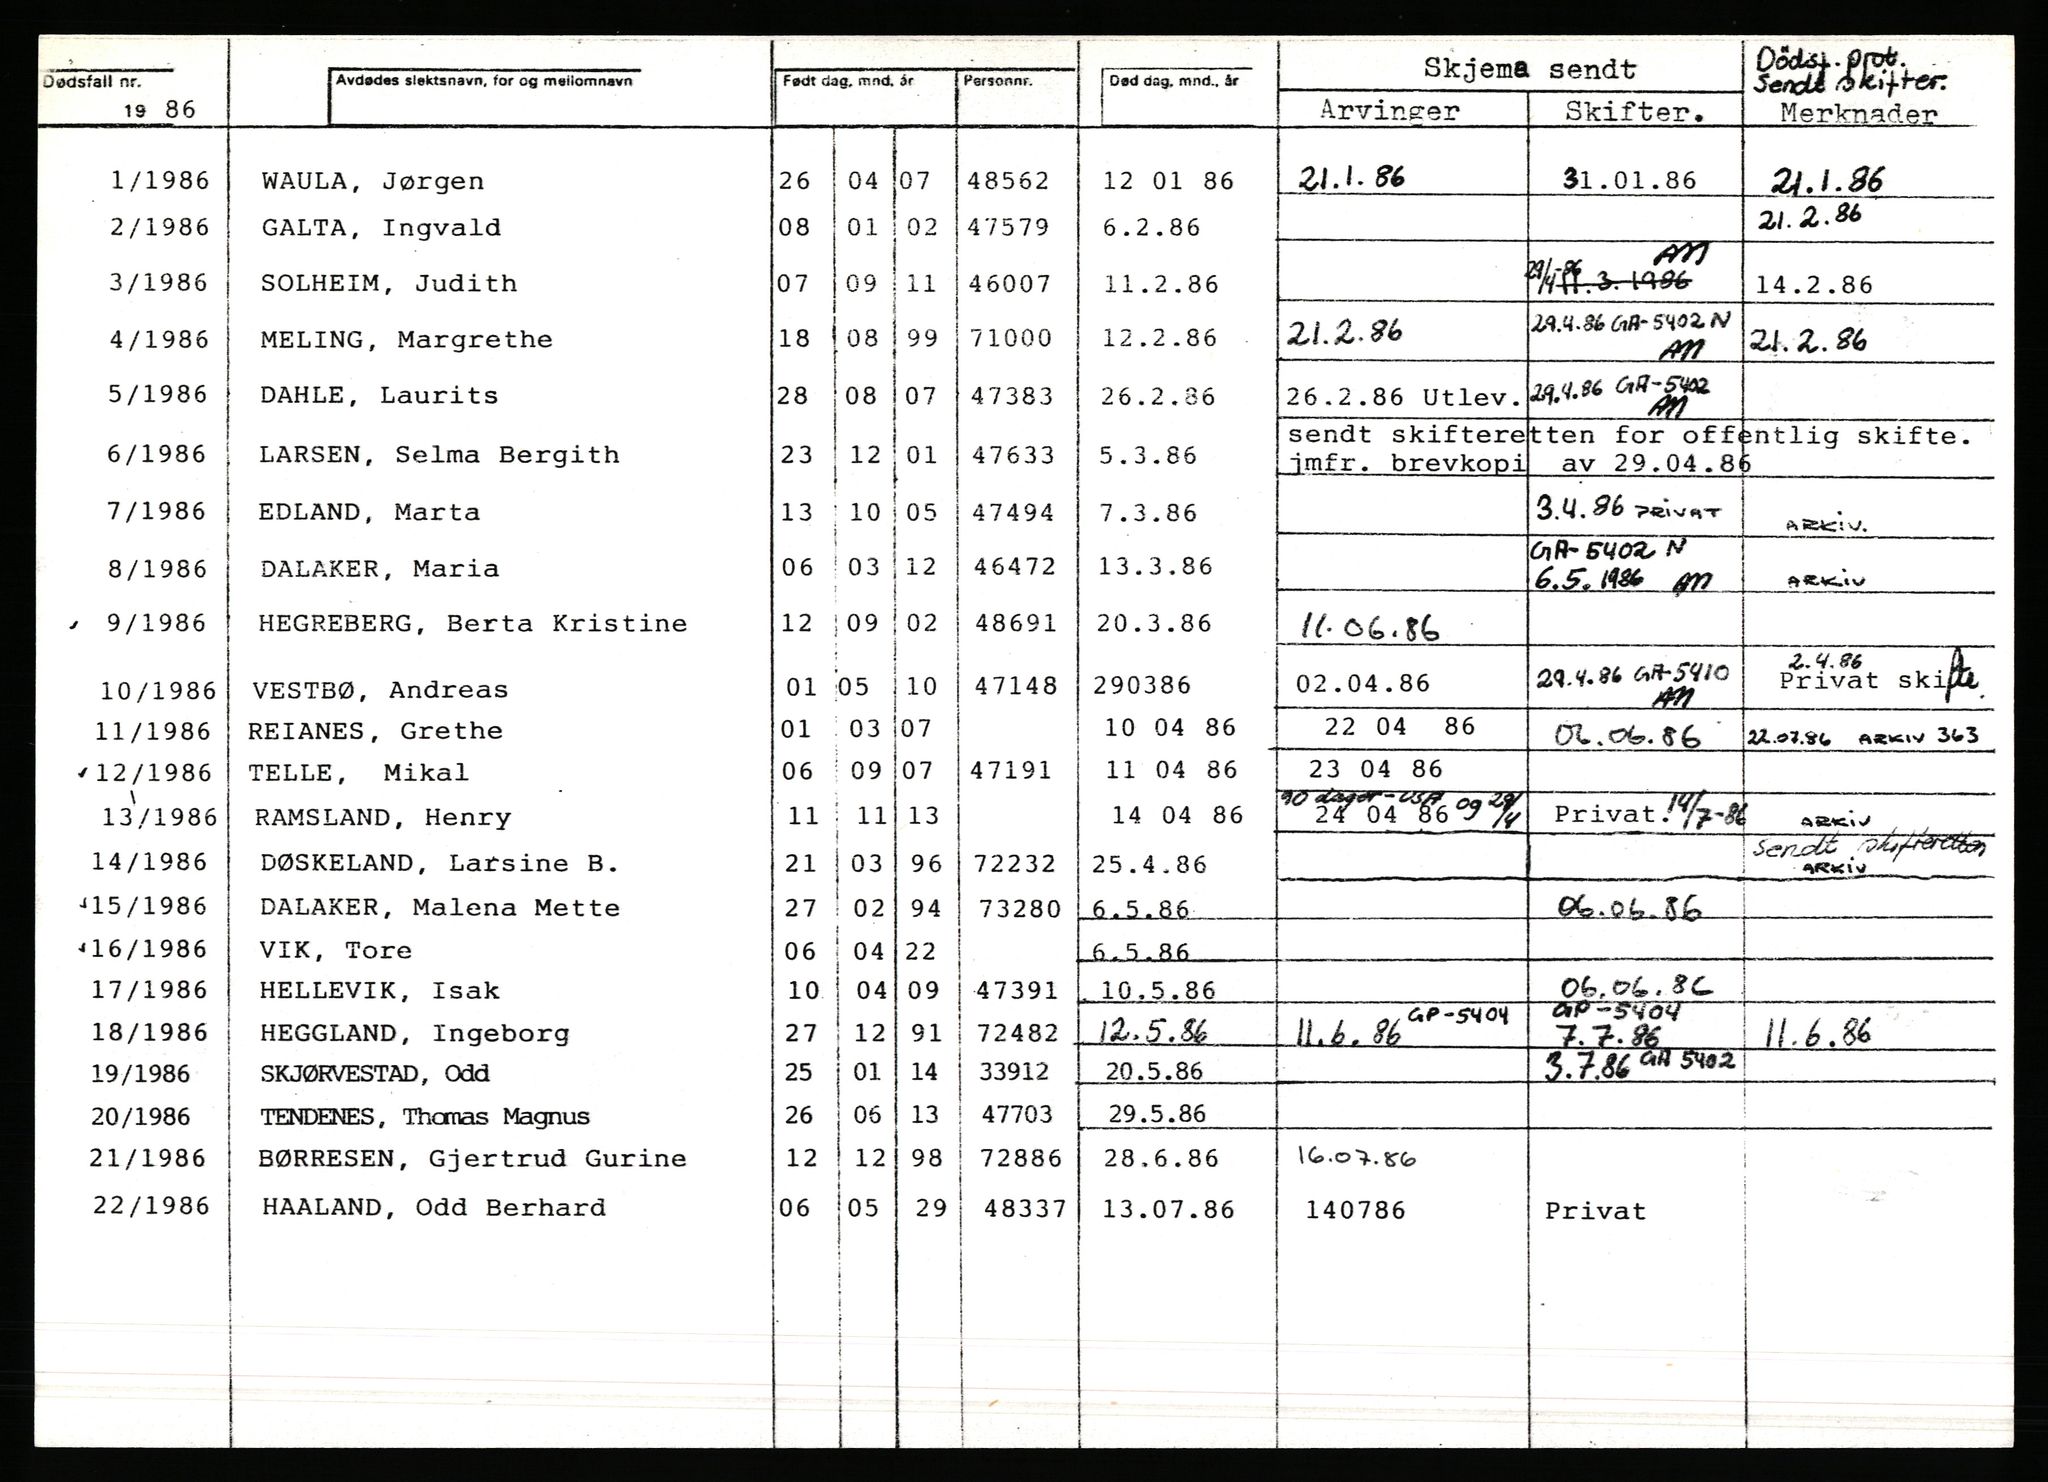 Dødsfall nr. Avdødes slektsnavn, for og mellomnavn Født dag, mnd, år Personnr. Død dag, mnd., år Skjema sendt Dödsf. prot. sendt skifter.
19 86 Arvinger Skifter. Merknader
1/1986 WAULA, Jørgen 26 04 07 48562 12 01 86 21.1.86 31.01.86 21.1.86
2/1986 GALTA, Ingvald 08 01 02 47579 6.2.86 21.2.86
3/1986 SOLHEIM, Judith 07 09 11 46007 11.2.86 29/4-86 11.3.1986 AM 14.2.86
4/1986 MELING, Margrethe 18 08 99 71000 12.2.86 21.2.86 29.4.86 GA-5402 N AM 21.2.86
5/1986 DAHLE, Laurits 28 08 07 47383 26.2.86 26.2.86 Utlev. 29.4.86 GA-5402 AM
6/1986 LARSEN, Selma Bergith 23 12 01 47633 5.3.86 sendt skifteretten for offentlig skifte.
jmfr. brevkopi av 29.04.86
7/1986 EDLAND, Marta 13 10 05 47494 7.3.86 3.4.86 PRIVAT ARKIV.
8/1986 DALAKER, Maria 06 03 12 46472 13.3.86 GA-5402 N
6.5.1986 AM ARKIV
9/1986 HEGREBERG, Berta Kristine 12 09 02 48691 20.3.86 11.06.86
10/1986 VESTBØ, Andreas 01 05 10 47148 290386 02.04.86 29.4.86 GA-5410 AM 2.4.86
Privat skifte.
11/1986 REIANES, Grethe 01 03 07 10 04 86 22 04 86 06.06.86 22.07.86 ARKIV 363
12/1986 TELLE, Mikal 06 09 07 47191 11 04 86 23 04 86
13/1986 RAMSLAND, Henry 11 11 13 14 04 86 90 dager-USA
24 04 86 og 29/4 Privat. 14/7-86 ARKIV
14/1986 DØSKELAND, Larsine B. 21 03 96 72232 25.4.86 Sendt skifteretten
ARKIV
15/1986 DALAKER, Malena Mette 27 02 94 73280 6.5.86 06.06.86
16/1986 VIK, Tore 06 04 22 6.5.86
17/1986 HELLEVIK, Isak 10 04 09 47391 10.5.86 06.06.86
18/1986 HEGGLAND, Ingeborg 27 12 91 72482 12.5.86 11.6.86 GP-5404 GP-5404
7.7.86 11.6.86
19/1986 SKJØRVESTAD, Odd 25 01 14 33912 20.5.86 3.7.86 GA 5402
20/1986 TENDENES, Thomas Magnus 26 06 13 47703 29.5.86
21/1986 BØRRESEN, Gjertrud Gurine 12 12 98 72886 28.6.86 16.07.86
22/1986 HAALAND, Odd Berhard 06 05 29 48337 13.07.86 140786 Privat